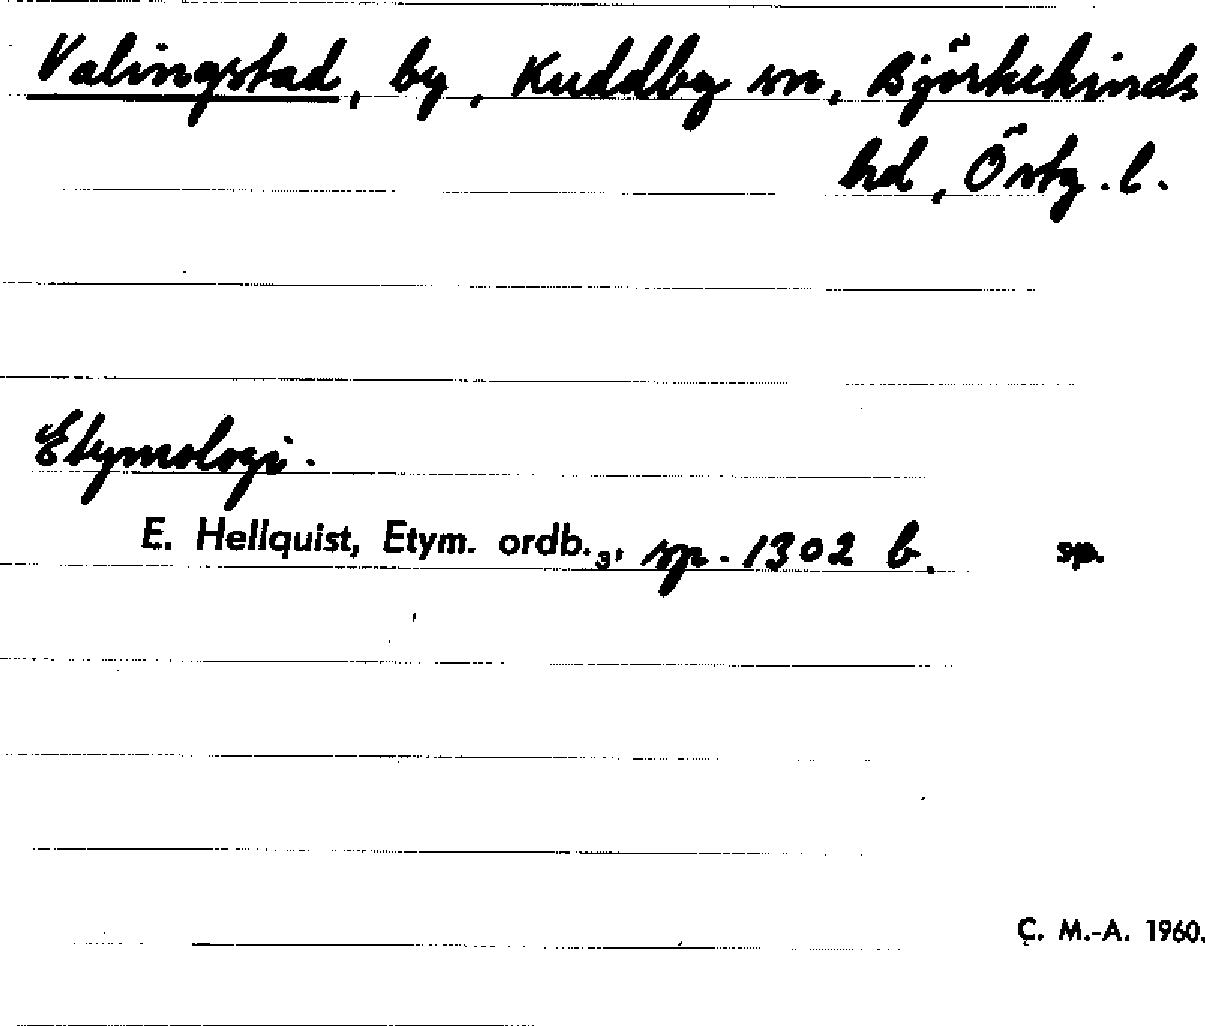 Valingstad, by, Kuddby sn, Björkekinds
hd, Östg. l.
Etymologi.
E. Hellquist, Etym. ordb.₃, sp. 1302 b. sp.
C. M.-A. 1960.